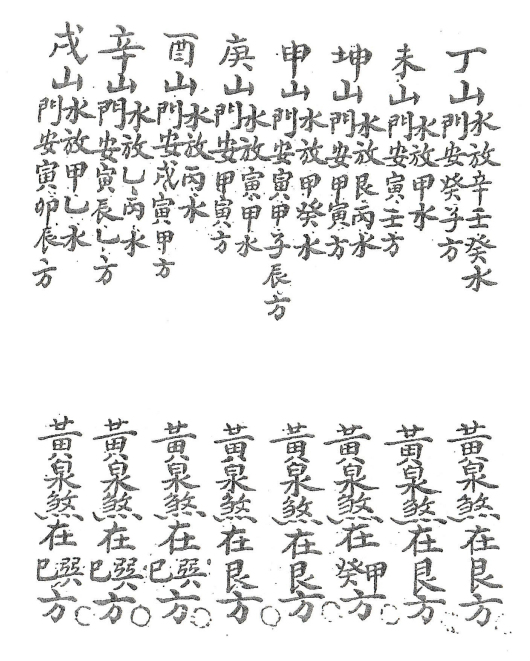 丁山
水放辛壬癸水
門安癸子方
黃泉煞在艮方
未山
水放甲水
門安寅壬方
黃泉煞在艮方
坤山
水放艮丙水
門安甲寅方
黃泉煞在甲癸方
申山
水放甲癸水
門安寅甲子辰方
黃泉煞在艮方
庚山
水放寅甲水
門安甲寅方
黃泉煞在艮方
酉山
水放丙水
門安戌寅甲方
黃泉煞在巽巳方
辛山
水放乙丙水
門安寅辰乙方
黃泉煞在巽巳方
戌山
水放甲乙水
門安寅卯辰方
黃泉煞在巽巳方